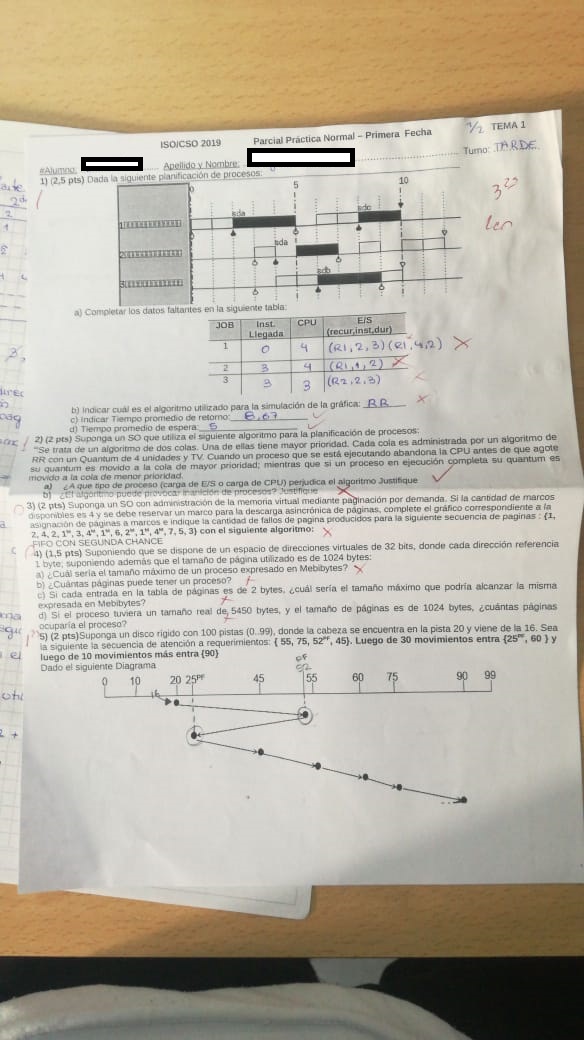 1/2 TEMA 1
ISO/CSO 2019 Parcial Práctica Normal – Primera Fecha
Turno: TARDE
#Alumno: Apellido y Nombre:
1) (2,5 pts) Dada la siguiente planificación de procesos:
0 5 10
sda sdc
1
sda
2
sdb
3
a) Completar los datos faltantes en la siguiente tabla:
JOB Inst. Llegada CPU E/S (recur,inst,dur)
1 0 4 (R1, 2, 3) (R1, 4, 2)
2 3 4 (R1, 1, 2)
3 3 3 (R2, 2, 3)
b) Indicar cuál es el algoritmo utilizado para la simulación de la gráfica: RR
c) Indicar Tiempo promedio de retorno: 8,67
d) Tiempo promedio de espera: 5
2) (2 pts) Suponga un SO que utiliza el siguiente algoritmo para la planificación de procesos:
"Se trata de un algoritmo de dos colas. Una de ellas tiene mayor prioridad. Cada cola es administrada por un algoritmo de
RR con un Quantum de 4 unidades y TV. Cuando un proceso que se está ejecutando abandona la CPU antes de que agote
su quantum es movido a la cola de mayor prioridad; mientras que si un proceso en ejecución completa su quantum es
movido a la cola de menor prioridad.
a) ¿A que tipo de proceso (carga de E/S o carga de CPU) perjudica el algoritmo Justifique
b) ¿El algoritmo puede provocar inanición de procesos? Justifique
3) (2 pts) Suponga un SO con administración de la memoria virtual mediante paginación por demanda. Si la cantidad de marcos
disponibles es 4 y se debe reservar un marco para la descarga asincrónica de páginas, complete el gráfico correspondiente a la
asignación de páginas a marcos e indique la cantidad de fallos de pagina producidos para la siguiente secuencia de paginas : {1,
2, 4, 2, 1ᴹ, 3, 4ᴹ, 1ᴹ, 6, 2ᴹ, 1ᴹ, 4ᴹ, 7, 5, 3} con el siguiente algoritmo:
FIFO CON SEGUNDA CHANCE
4) (1,5 pts) Suponiendo que se dispone de un espacio de direcciones virtuales de 32 bits, donde cada dirección referencia
1 byte; suponiendo además que el tamaño de página utilizado es de 1024 bytes:
a) ¿Cuál sería el tamaño máximo de un proceso expresado en Mebibytes?
b) ¿Cuántas páginas puede tener un proceso?
c) Si cada entrada en la tabla de páginas es de 2 bytes. ¿cuál sería el tamaño máximo que podría alcanzar la misma
expresada en Mebibytes?
d) Si el proceso tuviera un tamaño real de 5450 bytes, y el tamaño de páginas es de 1024 bytes, ¿cuántas páginas
ocuparía el proceso?
5) (2 pts)Suponga un disco rígido con 100 pistas (0..99), donde la cabeza se encuentra en la pista 20 y viene de la 16. Sea
la siguiente la secuencia de atención a requerimientos: { 55, 75, 52ᴾᶠ, 45}. Luego de 30 movimientos entra {25ᴾᶠ, 60 } y
luego de 10 movimientos más entra {90}
Dado el siguiente Diagrama
PF
52
0 10 20 25ᴾᶠ 45 55 60 75 90 99
16